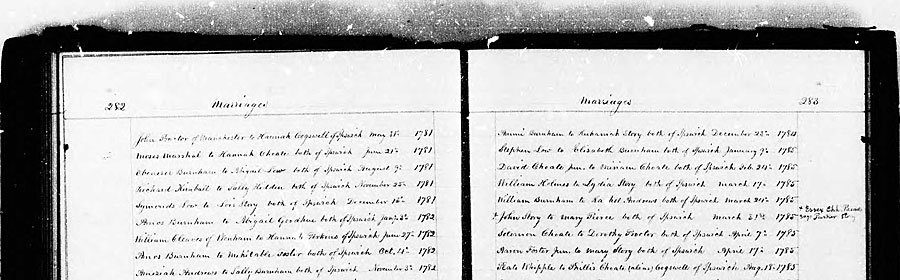 282 Marriages
John Proctor of Manchester to Hannah Cogswell of Ipswich may 28th 1781
Moses Marshal to Hannah Choate both of Ipswich June 21st 1781
Ebenezer Burnham to Abigail Low both of Ipswich August 9th 1781
Richard Kimball to Sally Holden both of Ipswich November 22d 1781
Symonds Low to Lois Story both of Ipswich December 1781
Amos Burnham to Abigail Goodhue both of Ipswich 1782
William Cleaves of Wenham to Hannah Perkins of Ipswich June 27th 1782
Amos Burnham to Mehitable both of Ipswich Oct. 1782
Ameziah Andrews to Sally Burnham both of Ipswich November 3d 1782
Marriages 283
Burnham to Story both of Ipswich December 22d 1784
Stephen Low to Elizabeth Burnham both of Ipswich January 9th 1785
David Choate jun. to Miriam Choate both of Ipswich Feb. 24th 1785
William Holmes to Lydia Story both of Ipswich march 17th 1785
William Burnham to Andrews both of Ipswich march 24th 1785
+ John Story to mary Pierce both of Ipswich march 31st 1785
+ Essex Chh.
says Parker Story
Solomon Choate to Dorothy Proctor both of Ipswich April 7th 1785
Aaron Foster jun. to mary Story both of Ipswich April 17th 1785
Whipple to Phillis Choate (alias) Cogswell of Ipswich Aug. 18th 1785